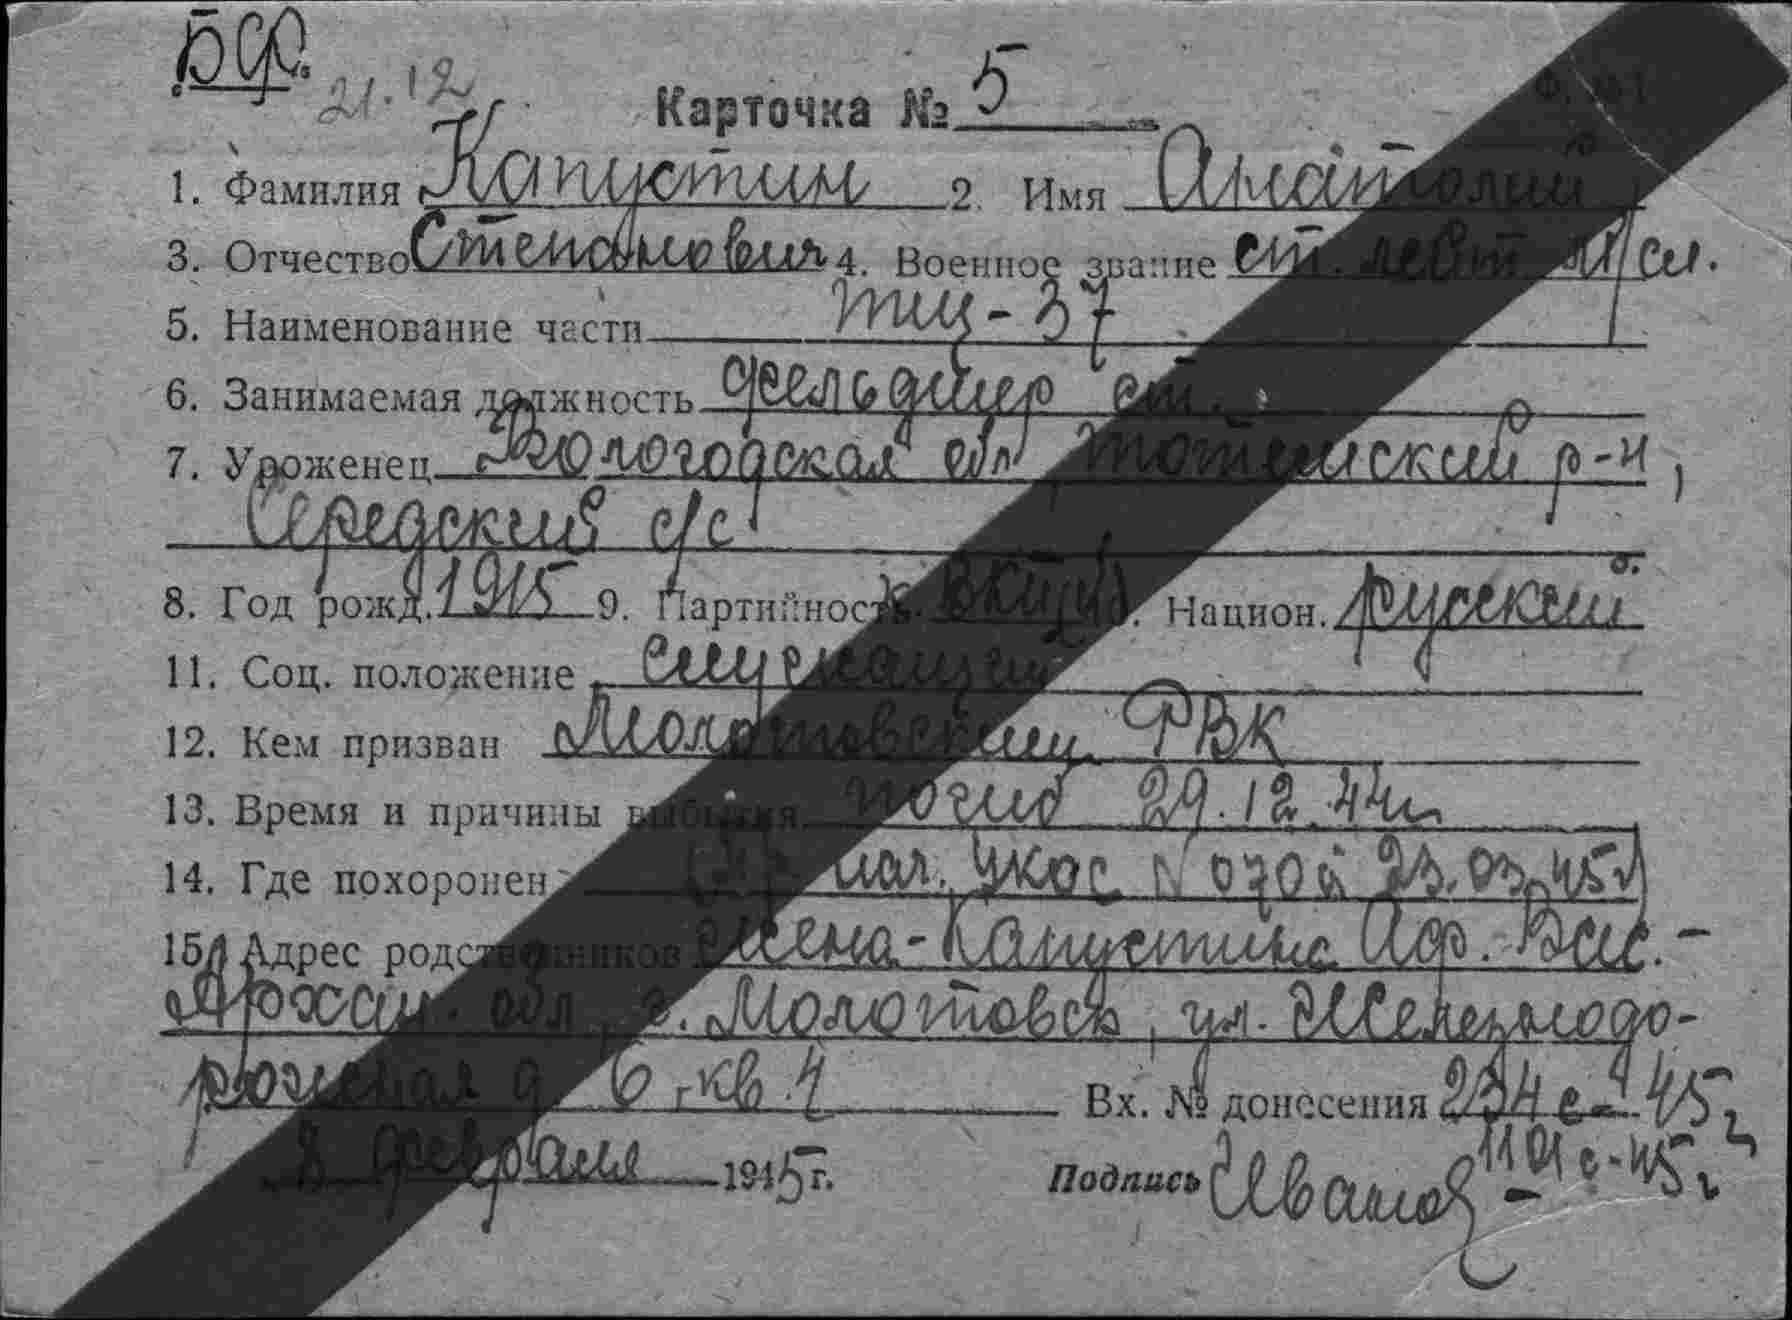 БФ. 21.12
Карточка № 5
1. Фамилия Капустин 2. Имя Анатолий
3. Отчество Степанович 4. Военное звание ст. лейт. м/сл.
5. Наименование части ТЩ-37
6. Занимаемая должность фельдшер ст.
7. Уроженец Вологодская обл Тотемский р-н,
с/с
8. Год рожд. 1915 9. Партийность ВКП(б) Национ. русский
11. Соц. положение служащий
12. Кем призван Молотовским РВК
13. Время и причины выбытия погиб 29.12.44г.
14. Где похоронен 23.03.45
15. Адрес родственников жена - Капустина
обл., г. Молотовск, ул. Железнодо-
рожная д 6, кв. 4 Вх. № донесения 45г,
8 февраля 1945 г. Подпись Иванов 1101с-45г